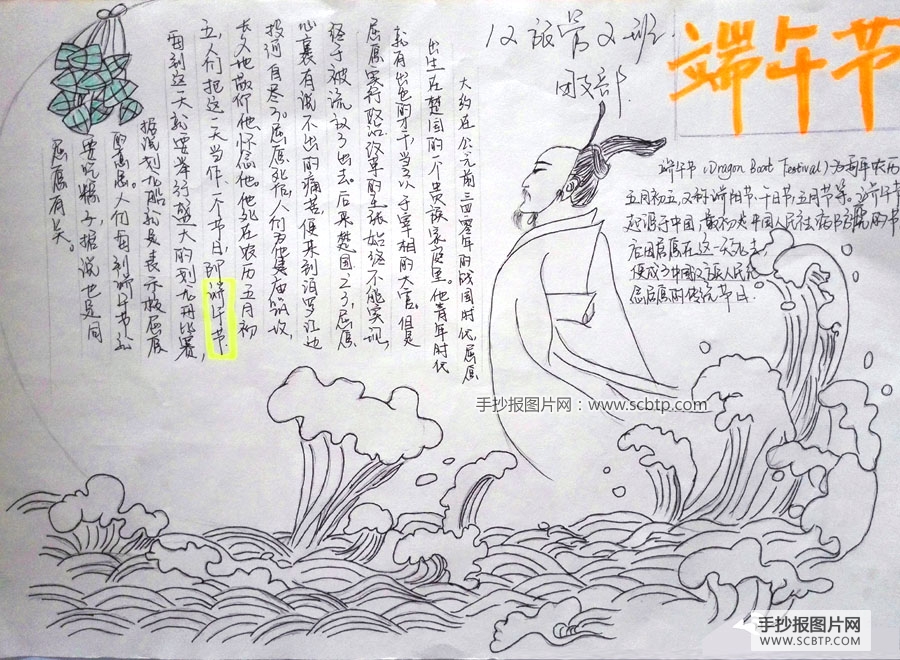 端午节
12旅营2班
团支部
端午节(Dragon Boat Festival)为每年农历
五月初五,又称端阳节、午日节、五月节等。端午节
起源于中国,最初是中国人民祛病防疫的节
后因屈原在这一天死去,
便成了中国汉族人民纪
念屈原的传统节日.
大约在公元前三四零年的战国时代,屈原
出生在楚国的一个贵族家庭里。他青年时代
就有出色的才干,当了以于宰相的大官。但是
屈原实行政治改革的主张始终不能实现,
终于被流放了出去。后来楚国亡了,屈原
心裏有说不出的痛苦,便来到汨罗江边
投河自尽了。屈原死后,人们为他建庙筑坟
长久地敬仰他怀念他。他死在农历五月初
五,人们把这一天当作一个节日,即端午节.
每到这一天就要举行盛大的划九舟比赛,
据说划九船就是表示拯救屈原
的意思。人们每到端午节都
要吃粽子,据说也是同
屈原有关。
手抄报图片网:www.scbtp.com
手抄报图片网
WWW.SCBTP.COM